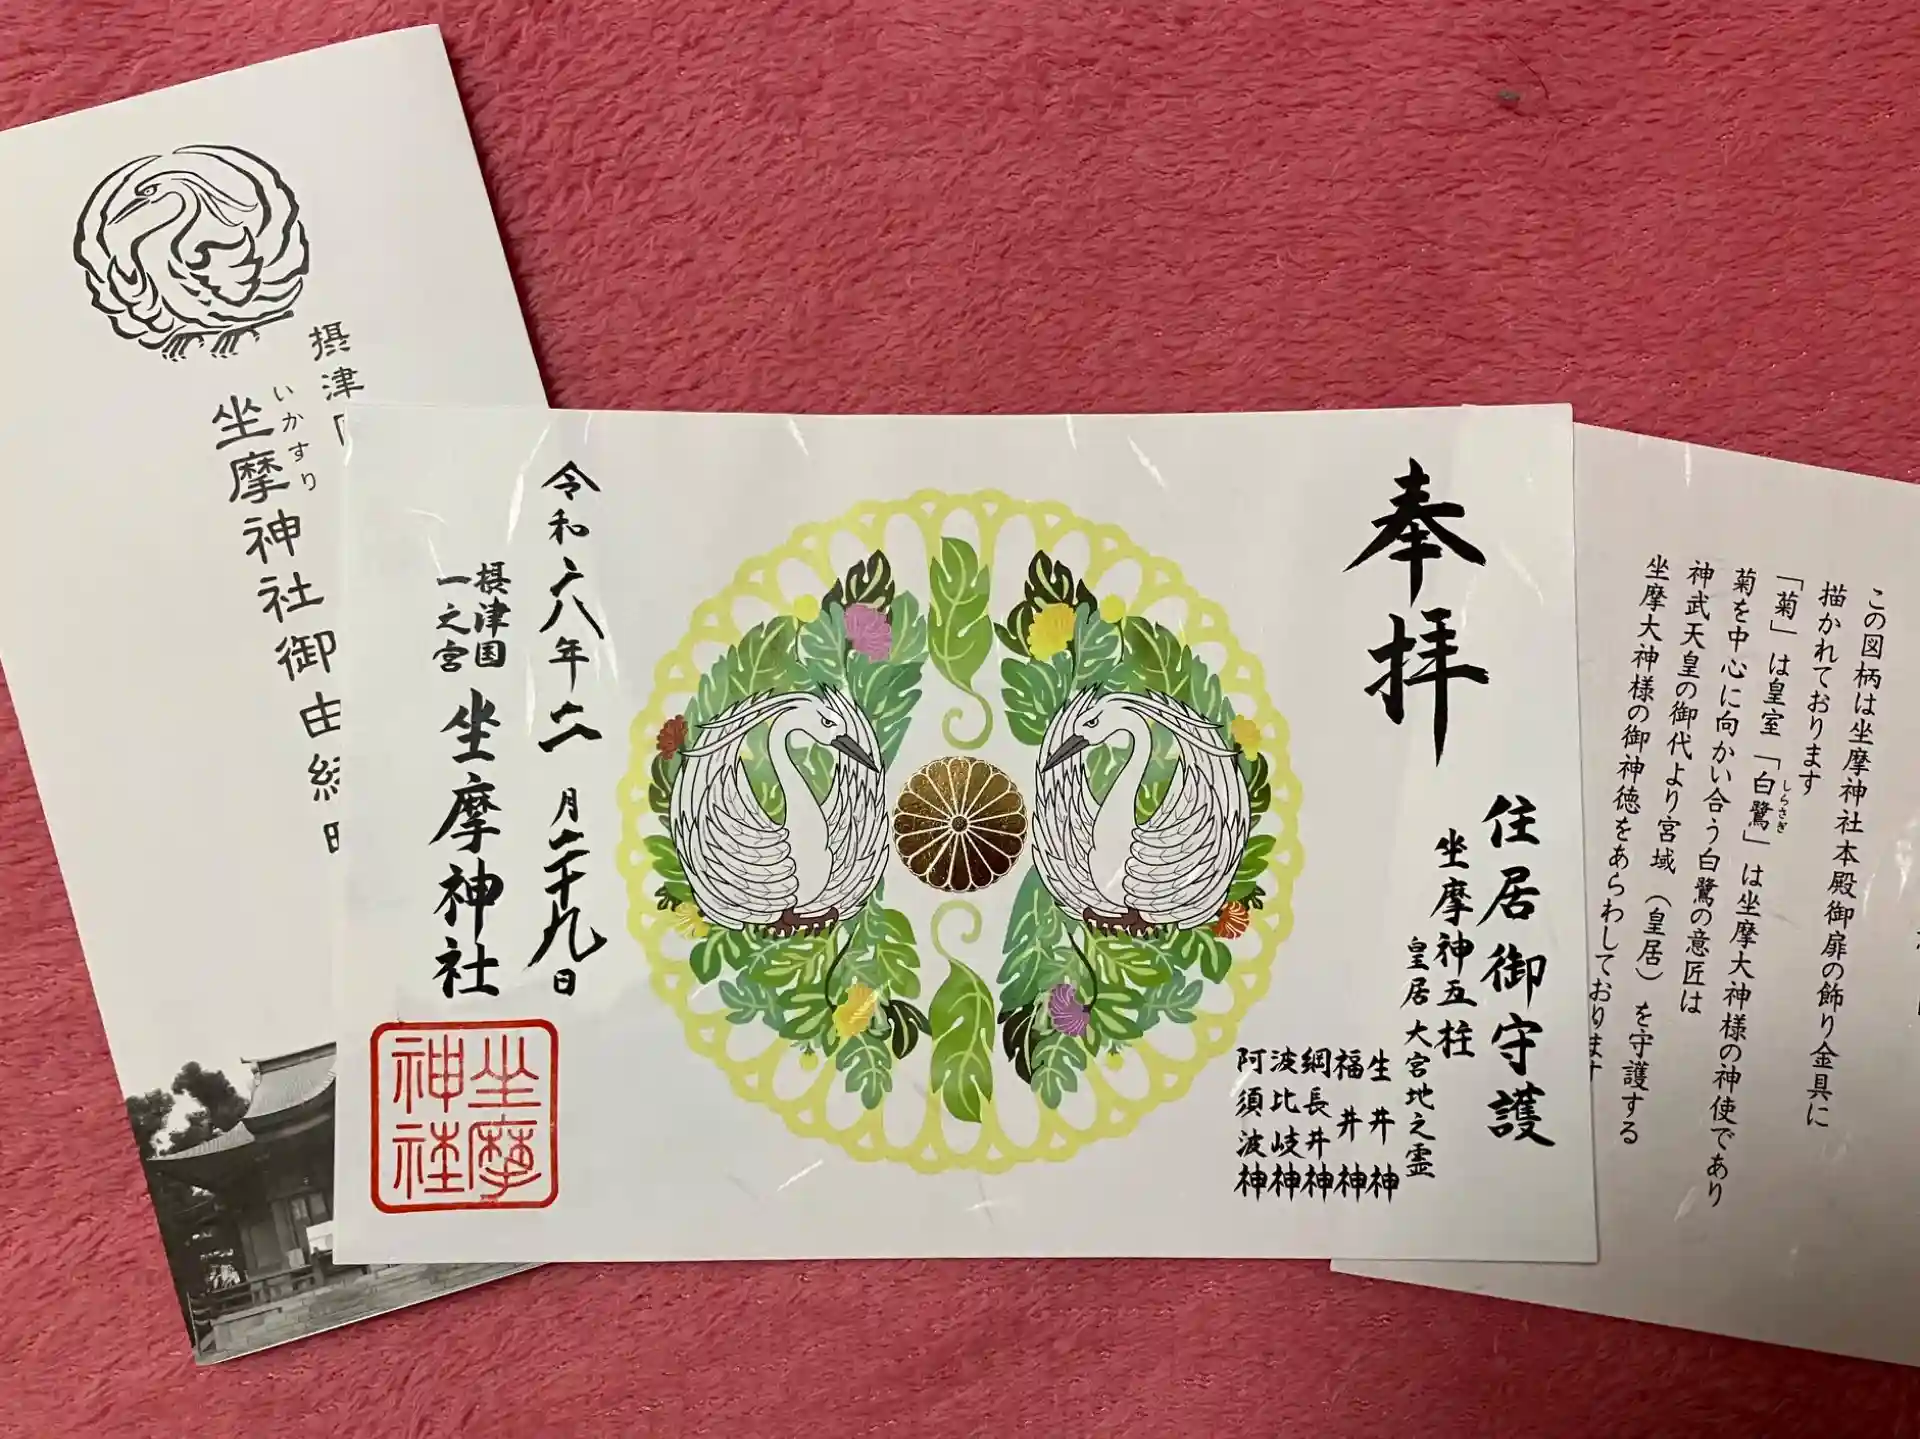 摂津
いかすり
坐摩神社御由緒
奉拝
住居御守護
坐摩神五柱
皇居 大宮地之霊
生井神
福井神
綱長井神
波比岐神
阿須波神
令和六年二月二十九日
摂津国
一之宮
坐摩神社
坐摩
神社
この図柄は坐摩神社本殿御扉の飾り金具に
描かれております
「菊」は皇室「白鷺」は坐摩大神様の神使であり
しらさぎ
菊を中心に向かい合う白鷺の意匠は
神武天皇の御代より宮域（皇居）を守護する
坐摩大神様の御神徳をあらわしております